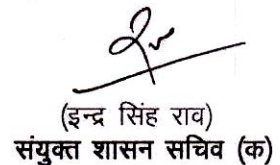 (इन्द्र सिंह राव)
संयुक्त शासन सचिव (क)